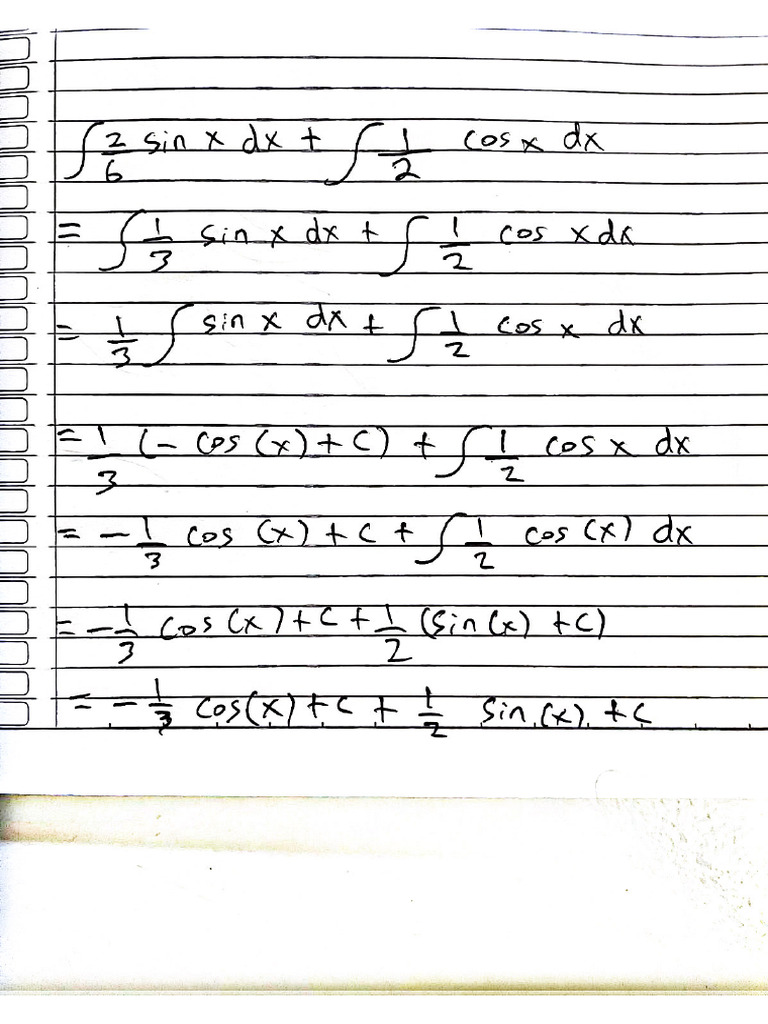 ∫ 2/6 sin x dx + ∫ 1/2 cos x dx
= ∫ 1/3 sin x dx + ∫ 1/2 cos x dx
= 1/3 ∫ sin x dx + ∫ 1/2 cos x dx
= 1/3 (- cos (x) + C) + ∫ 1/2 cos x dx
= - 1/3 cos (x) + C + ∫ 1/2 cos (x) dx
= - 1/3 cos (x) + C + 1/2 (sin (x) + C)
= - 1/3 cos (x) + C + 1/2 sin (x) + C